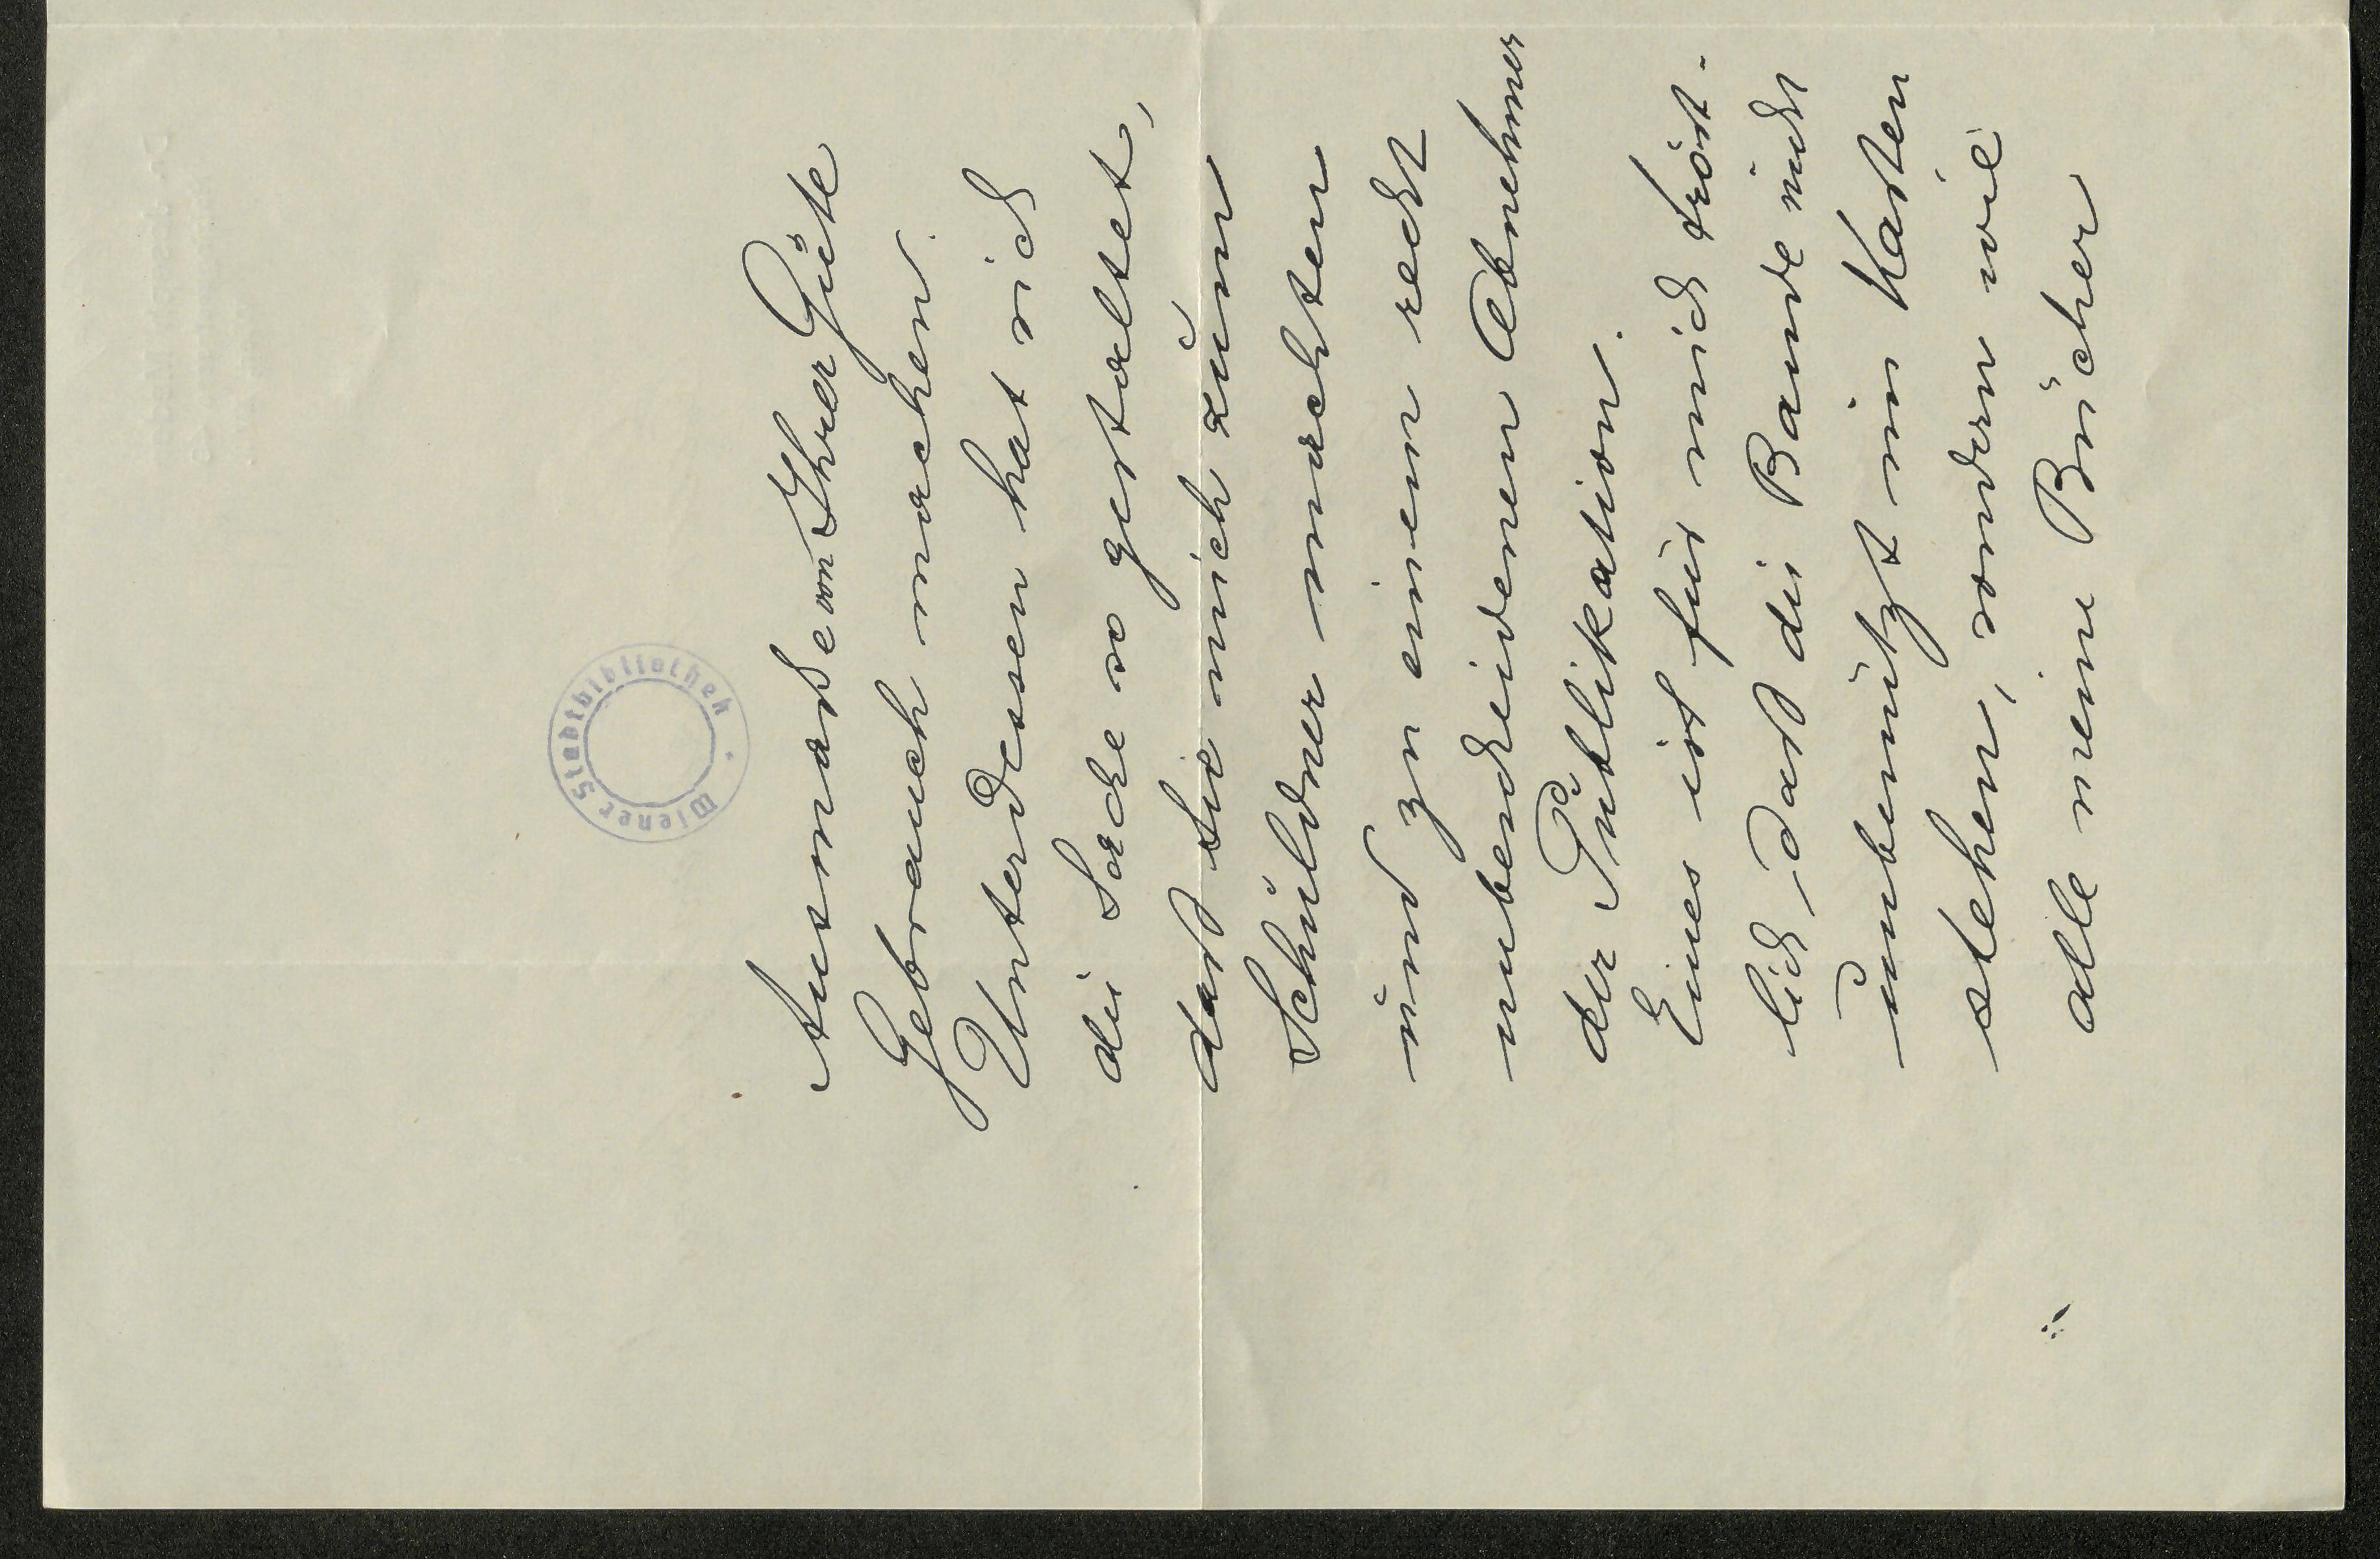 Ausmaße von Ihrer Güte
Gebrauch machen.
Unterdessen hat sich
die Sache so gestaltet,
daß Sie mich zum
Schuldner machten
und zu einem recht
unbescheidenen Abnehmer
der Publikation.
Eines ist für mich tröst-
lich, daß die Bände nicht
unbenützt im Kasten
stehen, sondern wie
alle meine Bücher
Wiener Stadtbibliothek